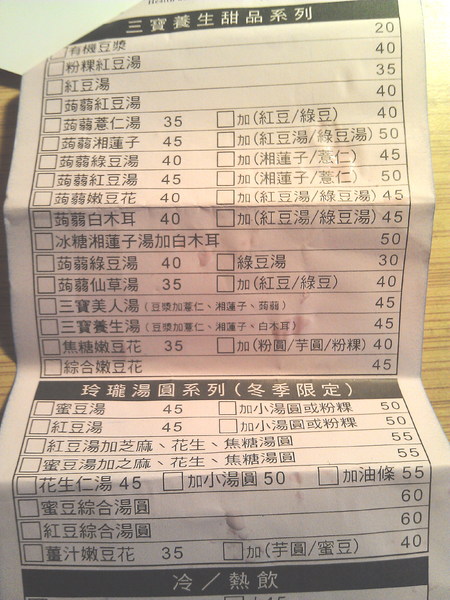 三寶養生甜品系列
有機豆漿 20
粉粿紅豆湯 40
紅豆湯 35
蒟蒻紅豆湯 40
蒟蒻薏仁湯 35 加(紅豆/綠豆) 40
蒟蒻湘蓮子 45 加(紅豆湯/綠豆湯) 50
蒟蒻綠豆湯 40 加(湘蓮子/薏仁) 45
蒟蒻紅豆湯 45 加(湘蓮子/薏仁) 50
蒟蒻嫩豆花 40 加(紅豆湯/綠豆湯) 45
蒟蒻白木耳 40 加(紅豆湯/綠豆湯) 45
冰糖湘蓮子湯加白木耳 50
蒟蒻綠豆湯 40 綠豆湯 30
蒟蒻仙草湯 35 加(紅豆/綠豆) 40
三寶美人湯(豆漿加薏仁、湘蓮子、蒟蒻) 45
三寶養生湯(豆漿加薏仁、湘蓮子、白木耳) 45
焦糖嫩豆花 35 加(粉圓/芋圓/粉粿) 40
綜合嫩豆花 45
玲瓏湯圓系列(冬季限定)
蜜豆湯 45 加小湯圓或粉粿 50
紅豆湯 45 加小湯圓或粉粿 50
紅豆湯加芝麻、花生、焦糖湯圓 55
蜜豆湯加芝麻、花生、焦糖湯圓 55
花生仁湯 45 加小湯圓 50 加油條 55
蜜豆綜合湯圓 60
紅豆綜合湯圓 60
薑汁嫩豆花 35 加(芋圓/蜜豆) 40
冷/熱飲